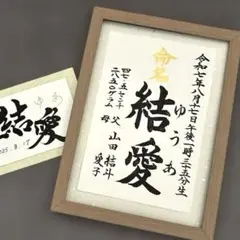 令和七年八月十七日午後一時三五分生
命名
結愛
ゆうあ
四七.五センチ
二八五〇グラム
父 山田結斗
母 愛子
ゆあ
結愛
025.8.17